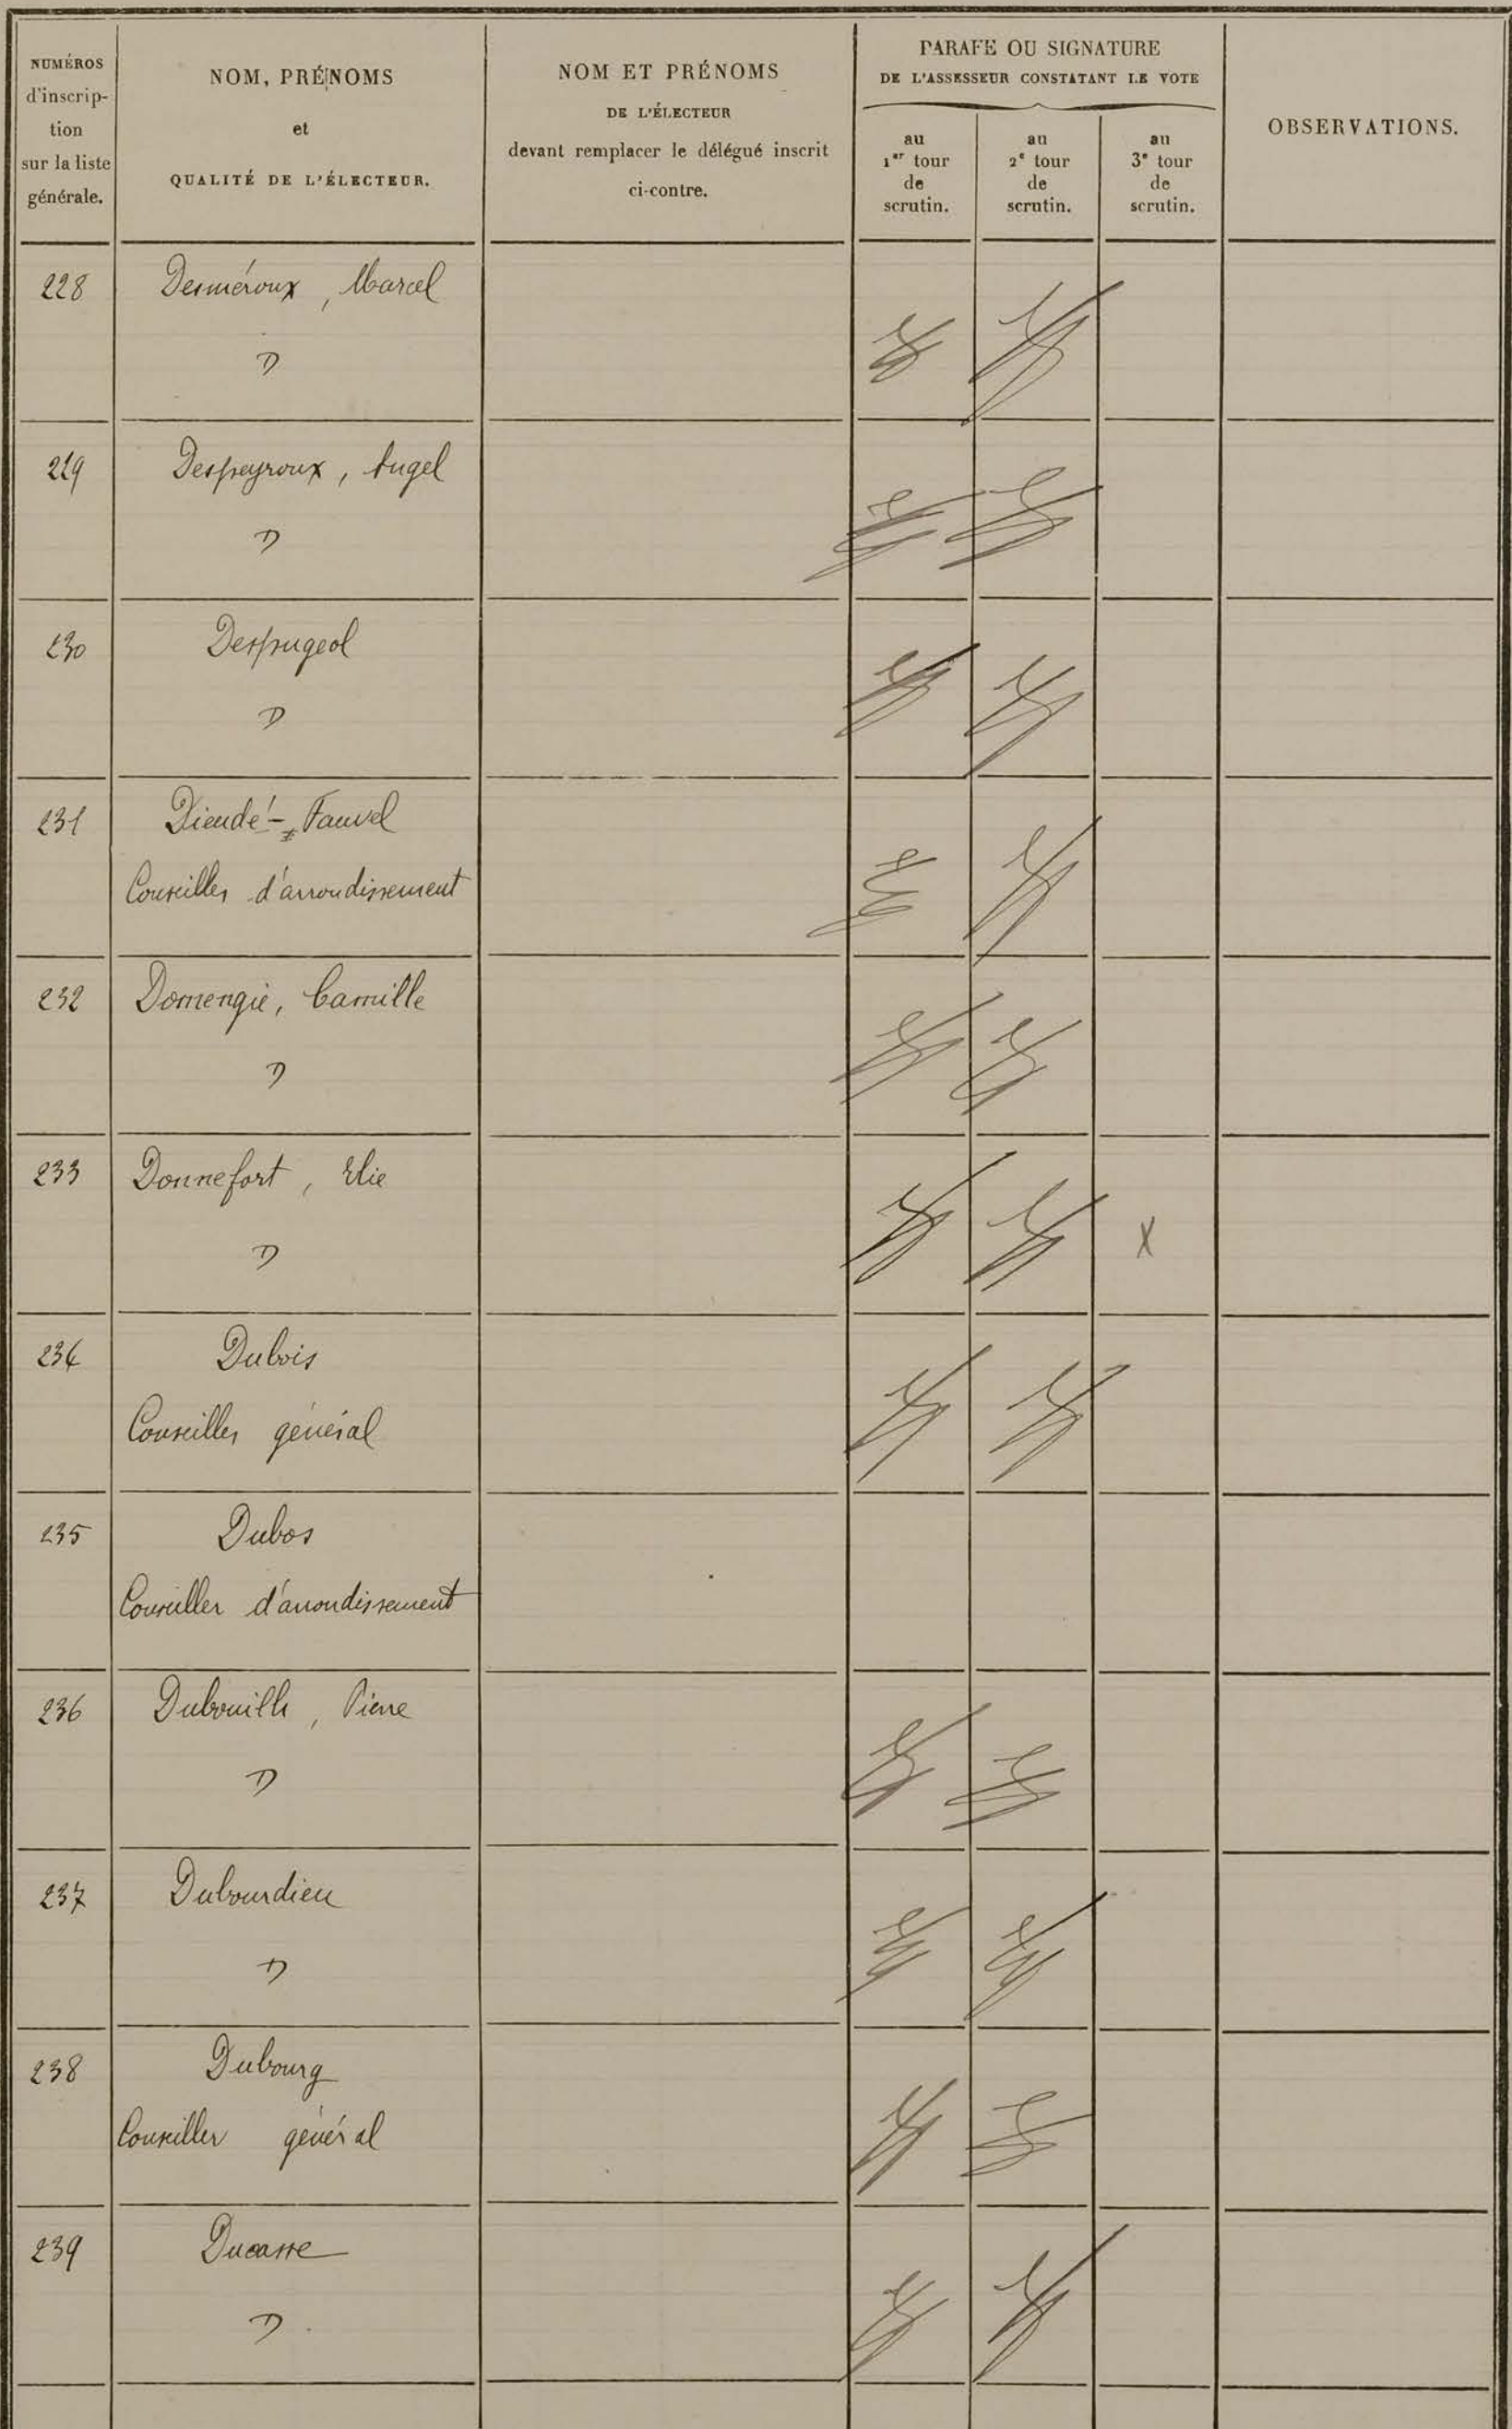 NUMÉROS
d'inscrip-
tion
sur la liste
générale.
NOM, PRÉNOMS
et
QUALITÉ DE L'ÉLECTEUR.
NOM ET PRÉNOMS
DE L'ÉLECTEUR
devant remplacer le délégué inscrit
ci-contre.
PARAFE OU SIGNATURE
DE L'ASSESSEUR CONSTATANT LE VOTE
au
1er tour
de
scrutin.
au
2e tour
de
scrutin.
au
3e tour
de
scrutin.
OBSERVATIONS.
228 Desméroux, Marcel
D
229 Despeyroux, Angel
D
230 Despugeol
D
231 Dieudé - Fauvel
Conseiller d'arrondissement
232 Domengie, Camille
D
233 Donnefort, Elie
D X
234 Dubois
Conseiller général
235 Dubos
Conseiller d'arrondissement
236 Dubouilh, Pierre
D
237 Dubourdieu
D
238 Dubourg
Conseiller général
239 Ducasse
D